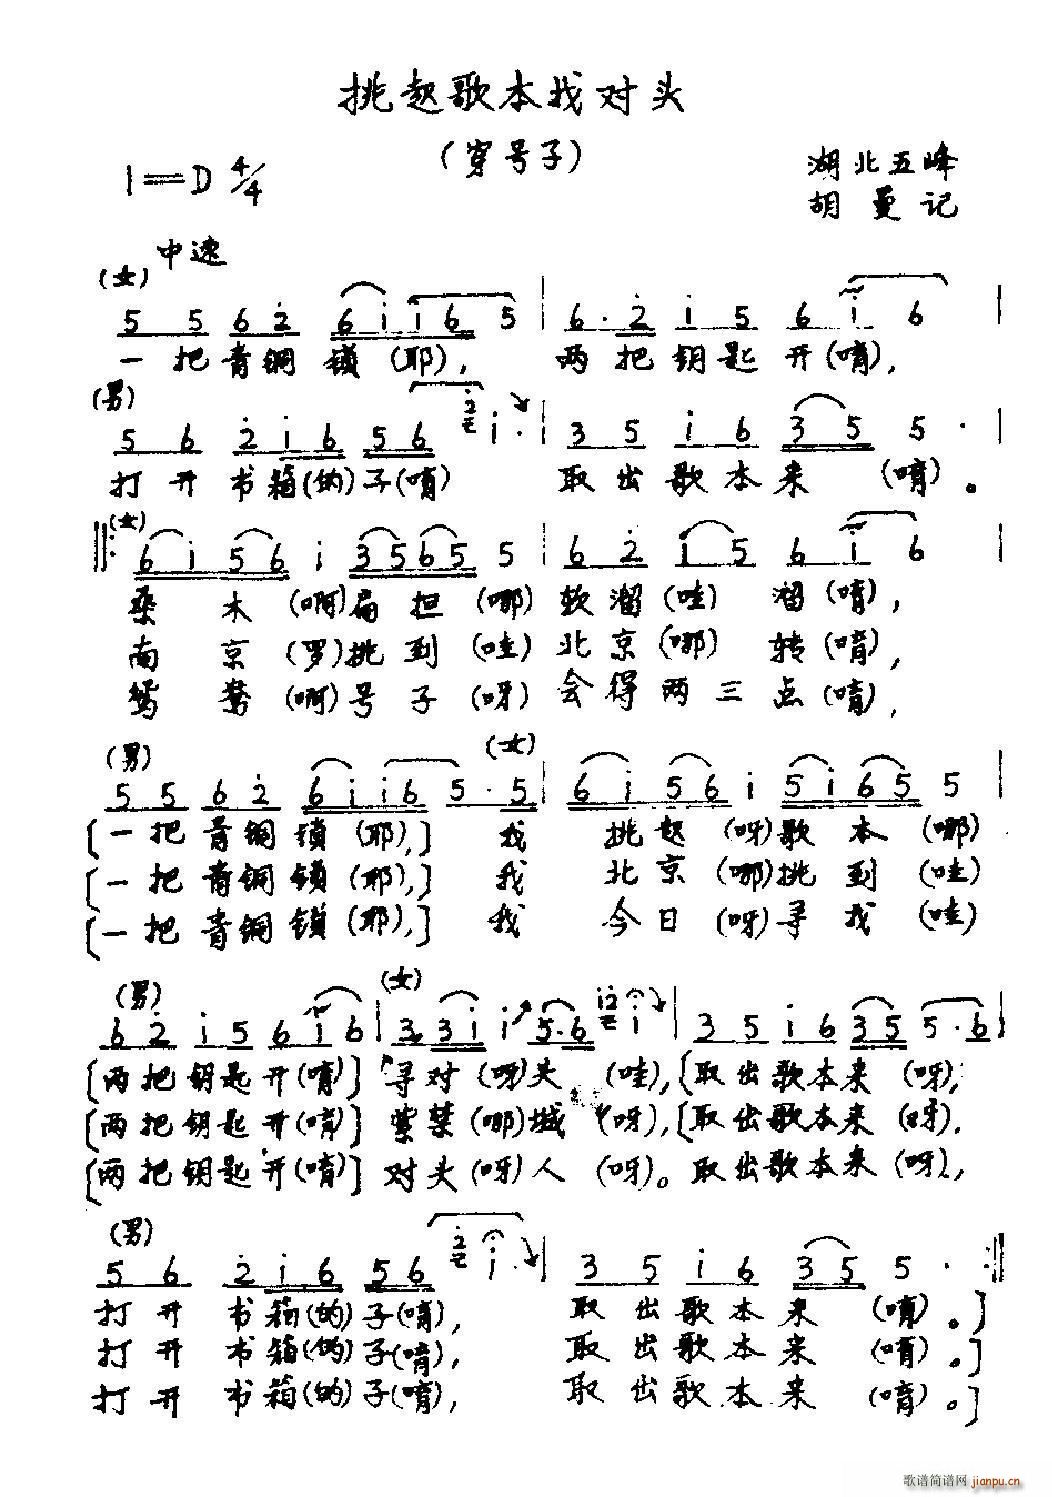 挑起歌本找对头
(穿号子)
1=D 4/4
湖北五峰
胡曼记
中速
(女)
5 5 6 2̇ 6 i i 6 5 | 6· 2̇ i 5 6 i 6 |
一把青铜锁(耶), 两把钥匙开(唷),
(男)
5 6 2̇ i 6 5 6 2̇ i· | 3 5 i 6 3 5 5· |
打开书箱(的)子(唷) 取出歌本来(唷)。
(女)
‖: 6 i 5 6 i 3 5 6 5 5 | 6 2̇ i 5 6 i 6 |
桑木(啊)扁担(哪)软溜(哇)溜(唷),
南京(罗)挑到(哇)北京(哪)转(唷),
鸳鸯(啊)号子(呀)会得两三点(唷),
(男) (女)
5 5 6 2̇ 6 i i 6 5· 5 | 6 i 5 6 i 5 i 6 5 5 |
[一把青铜锁(耶),] 我 挑起(呀)歌本(哪)
[一把青铜锁(耶),] 我 北京(哪)挑到(哇)
[一把青铜锁(耶),] 我 今日(呀)寻找(哇)
(男) (女)
6 2̇ i 5 6 i 6 | 3 3 i i 5·6 i 2̇ i | 3 5 i 6 3 5 5·6 |
[两把钥匙开(唷)] 寻对(呀)头(哇),[取出歌本来(呀),
[两把钥匙开(唷)] 紫禁(哪)城(呀),[取出歌本来(呀),
[两把钥匙开(唷)] 对头(呀)人(呀)。取出歌本来(呀),
(男)
5 6 2̇ i 6 5 6 2̇ i | 3 5 i 6 3 5 5· :‖
打开书箱(的)子(唷), 取出歌本来(唷)。]
打开书箱(的)子(唷), 取出歌本来(唷)。]
打开书箱(的)子(唷), 取出歌本来(唷)。]
歌谱简谱网 jianpu.cn